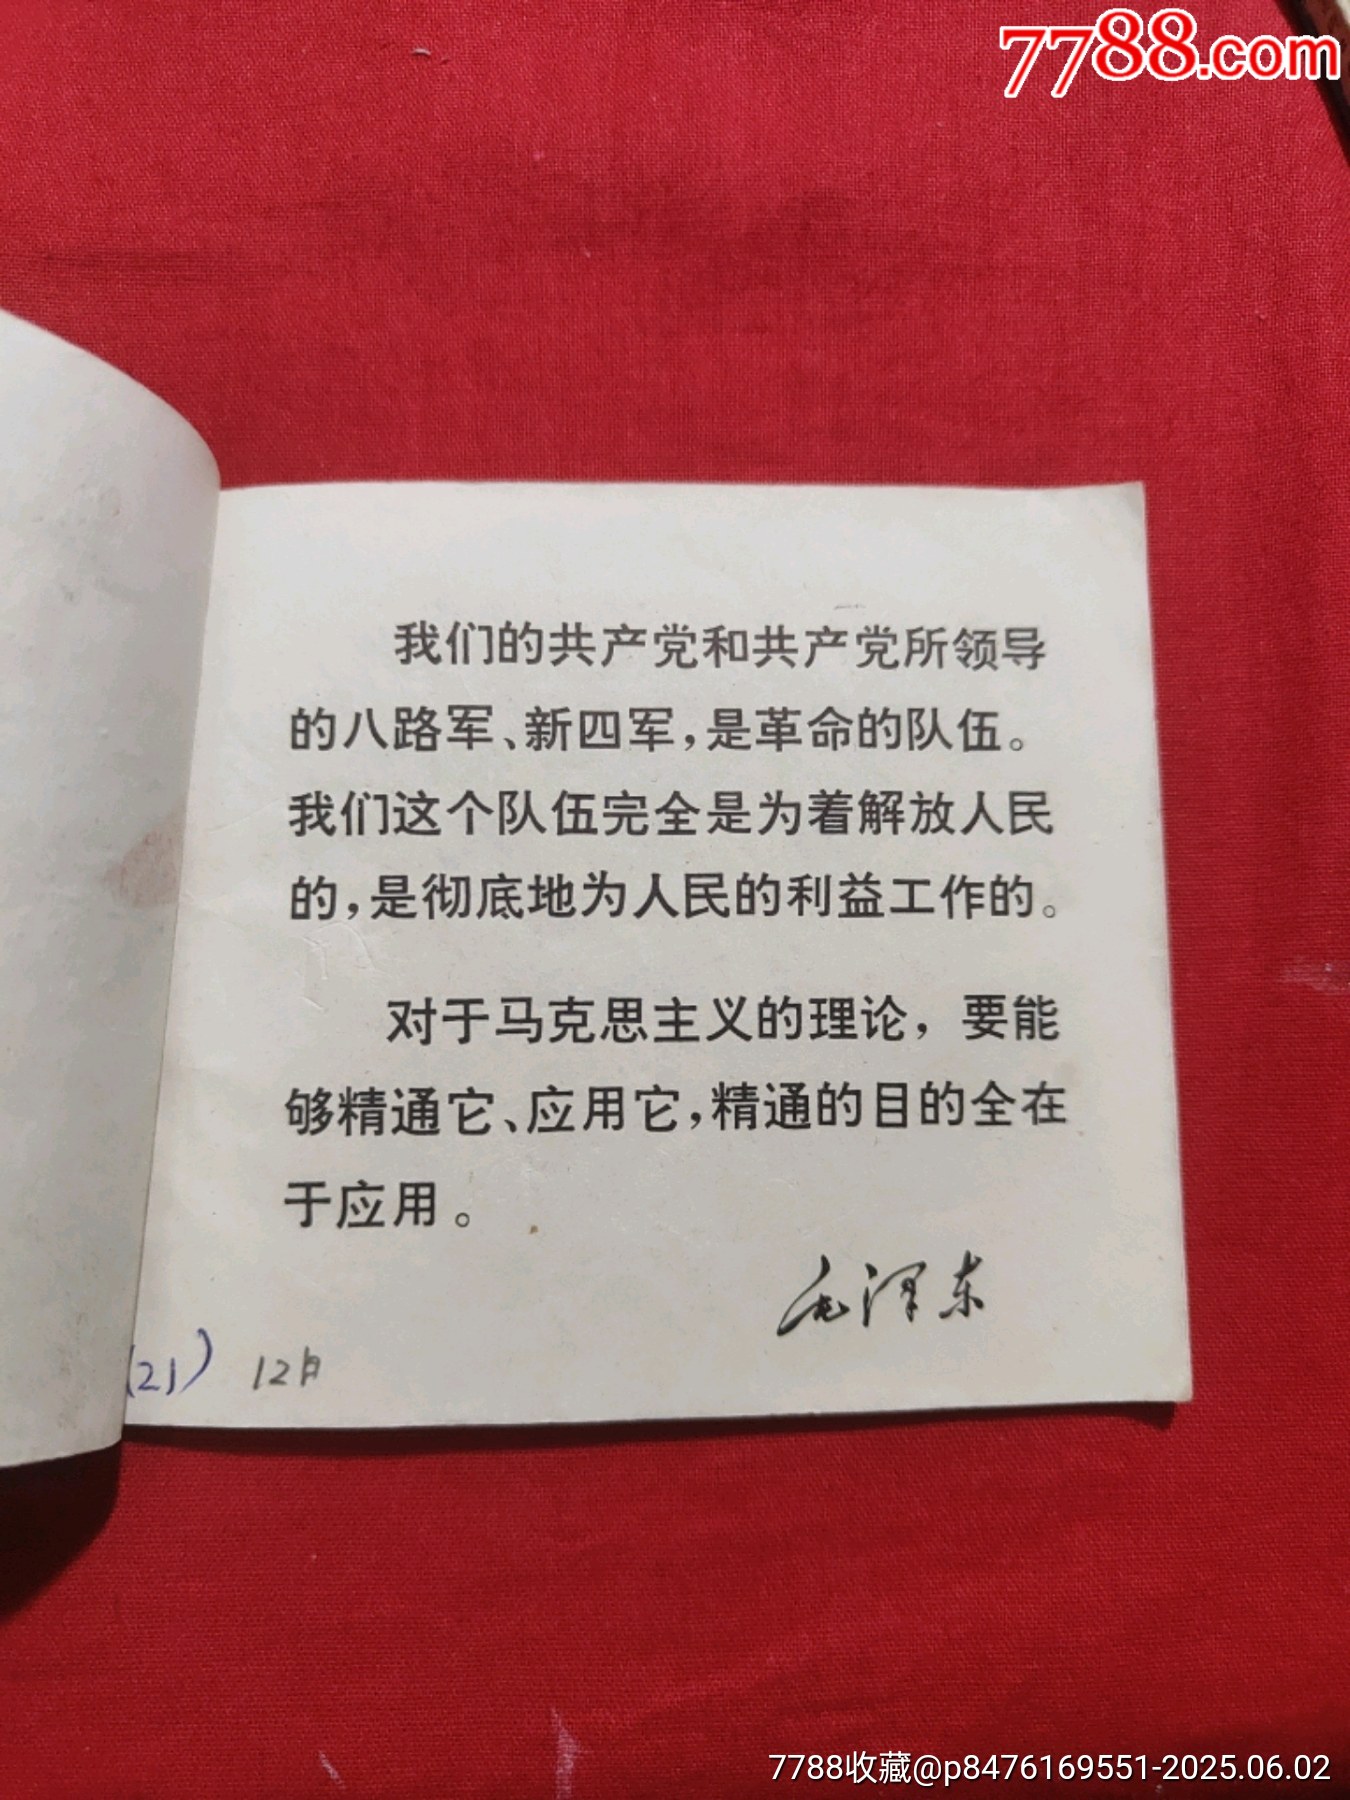 7788.com
我们的共产党和共产党所领导
的八路军、新四军，是革命的队伍。
我们这个队伍完全是为着解放人民
的，是彻底地为人民的利益工作的。
对于马克思主义的理论，要能
够精通它、应用它，精通的目的全在
于应用。
毛泽东
(21) 12月
7788收藏@p8476169551-2025.06.02